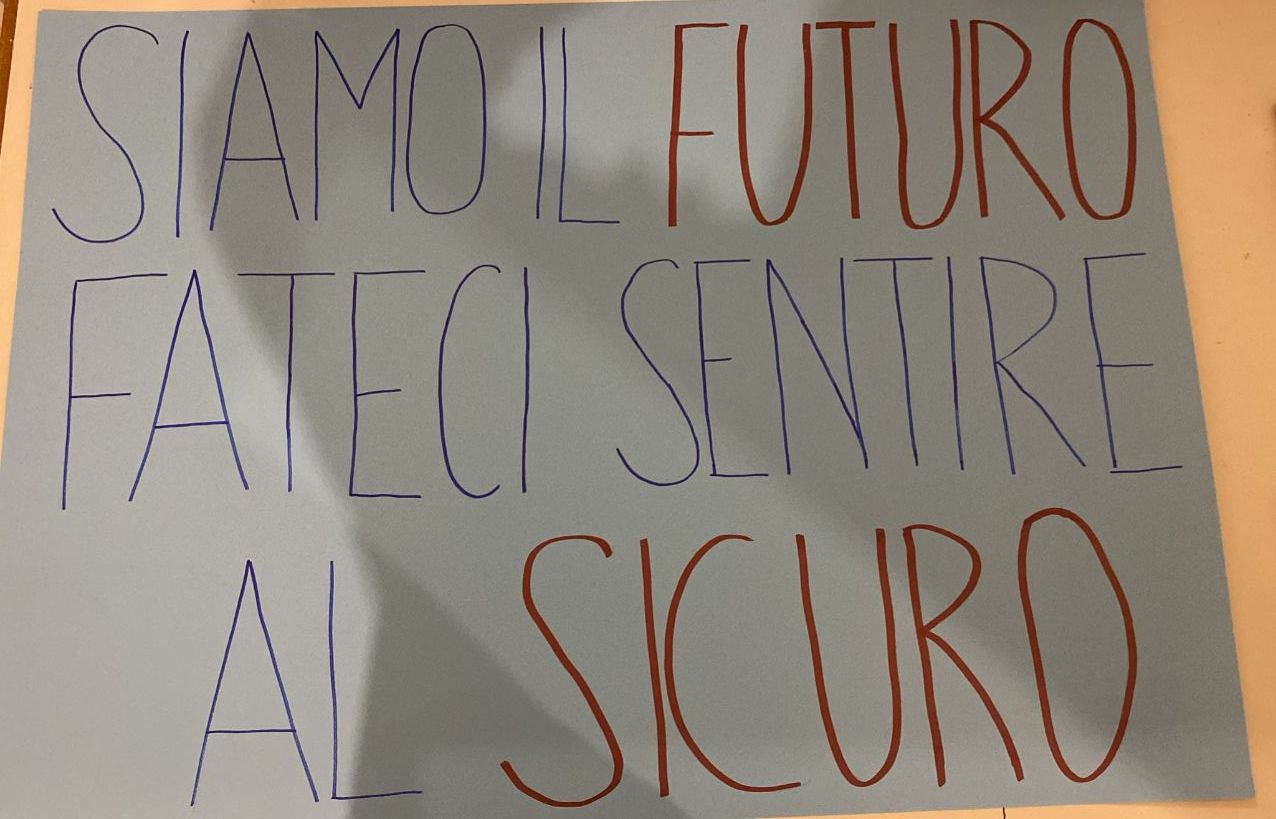 SIAMO IL FUTURO
FATECI SENTIRE
AL SICURO